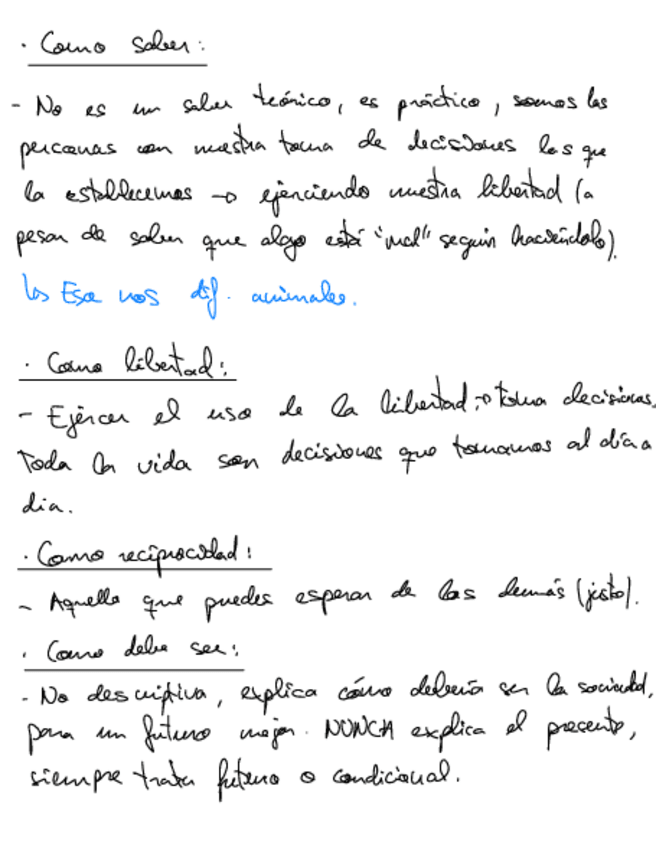 · Como saber:
- No es un saber teórico, es práctico, somos las
personas con nuestra toma de decisiones las que
la establecemos → ejerciendo nuestra libertad (a
pesar de saber que algo está "mal" seguir haciéndolo).
↳ Eso nos dif. animales.
· Como libertad:
- Ejercer el uso de la libertad → toma decisiones.
Toda la vida son decisiones que tomamos al día a
día.
· Como reciprocidad:
- Aquello que puedes esperar de los demás (justo).
· Como debe ser:
- No descriptiva, explica cómo debería ser la sociedad,
para un futuro mejor. NUNCA explica el presente,
siempre trata futuro o condicional.